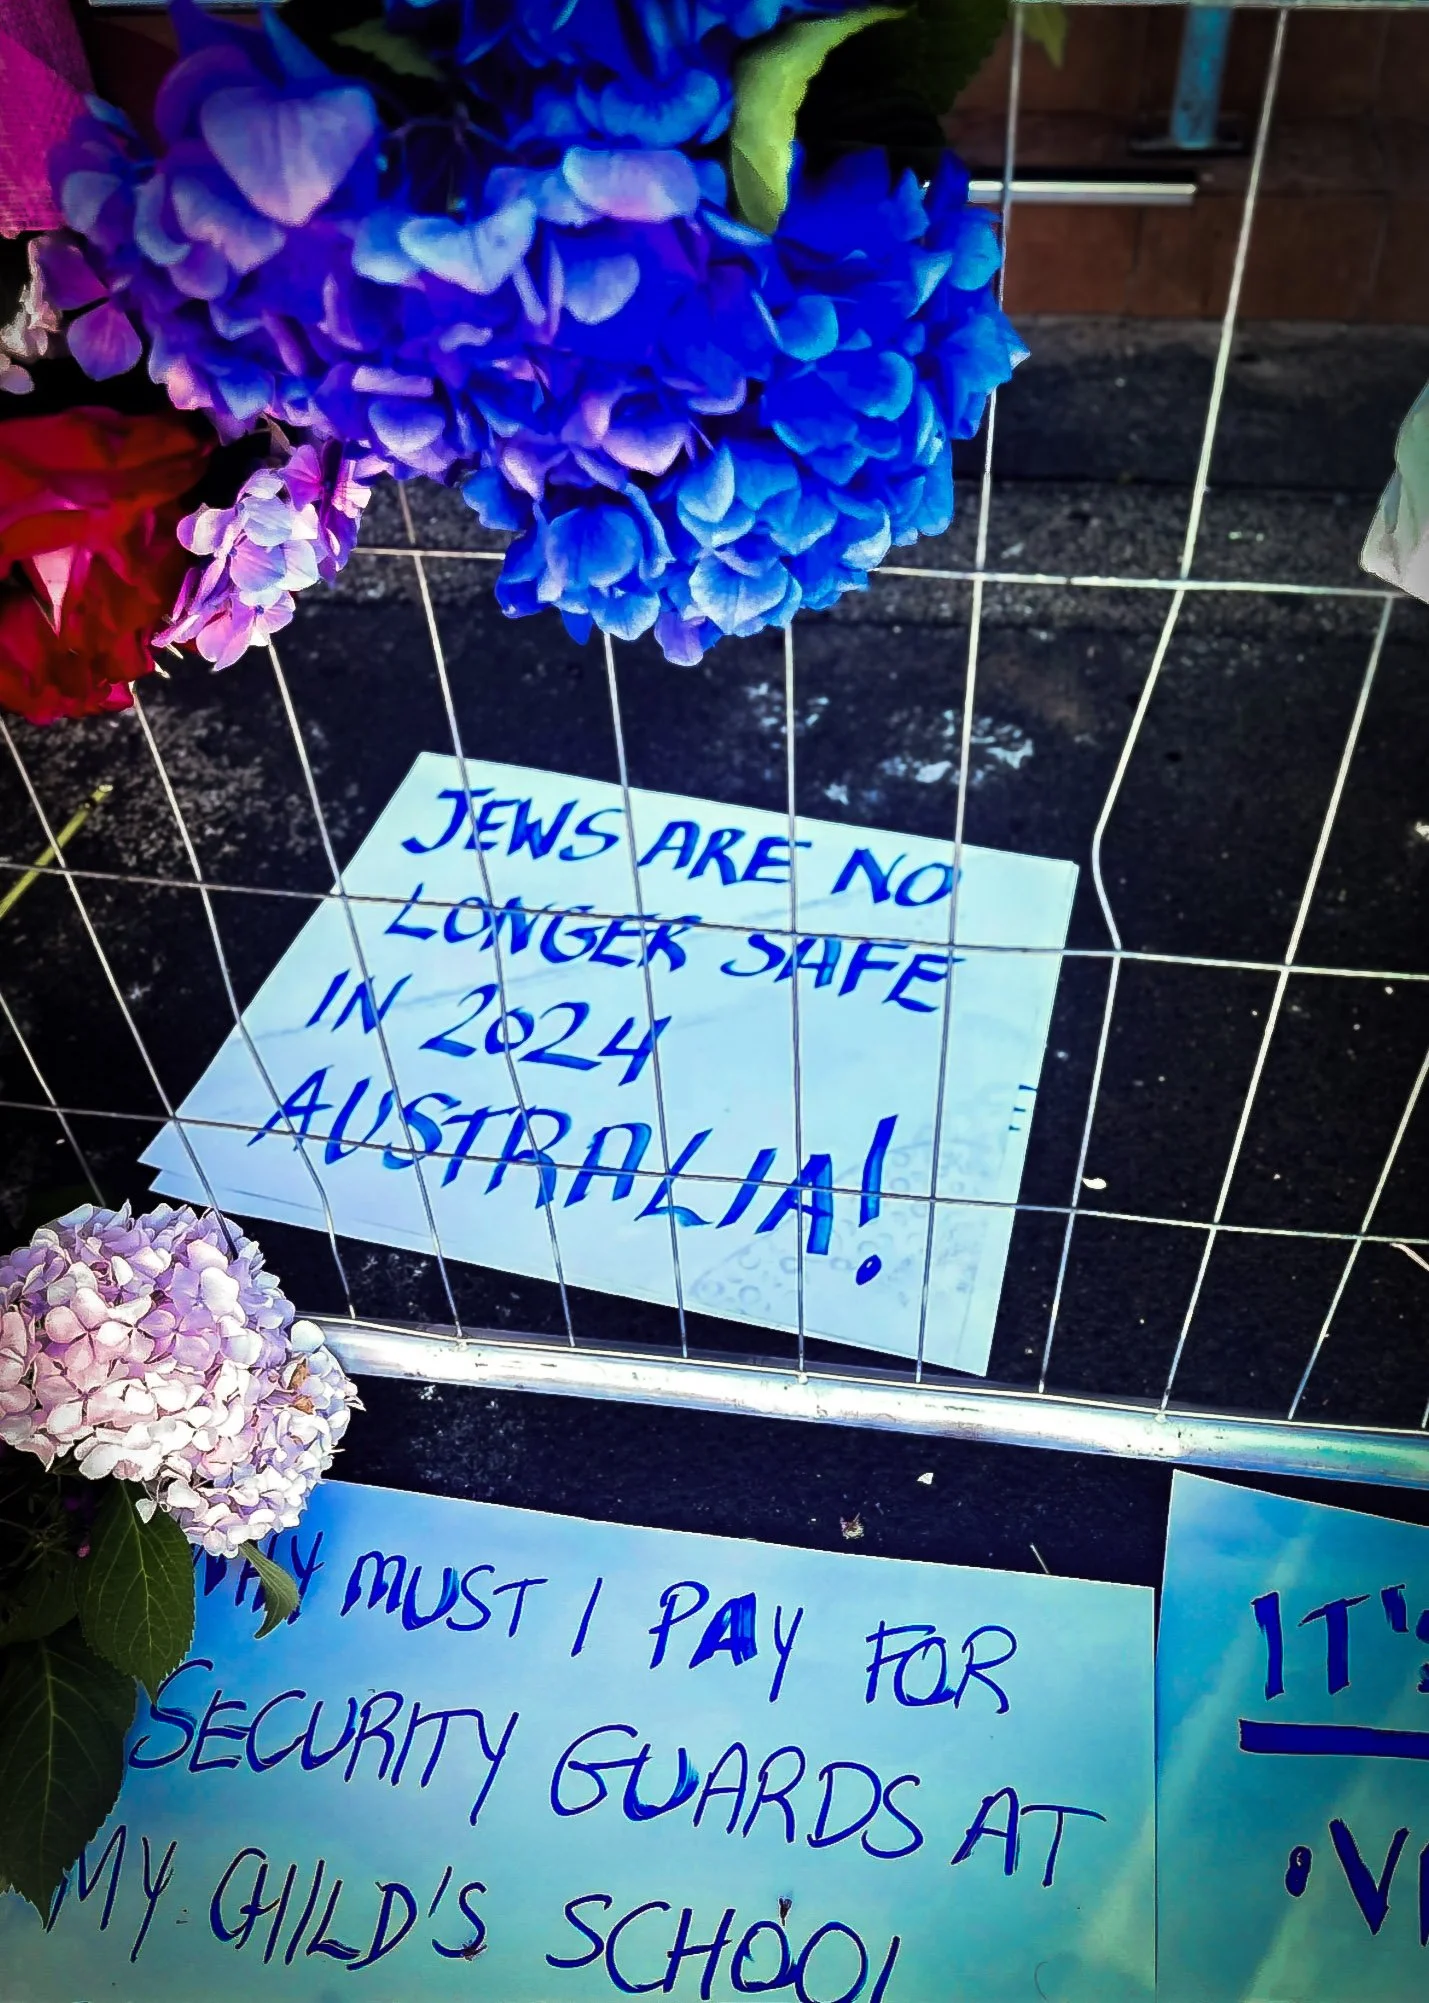 JEWS ARE NO
LONGER SAFE
IN 2024
AUSTRALIA!
WHY MUST I PAY FOR
SECURITY GUARDS AT
MY CHILD'S SCHOOL